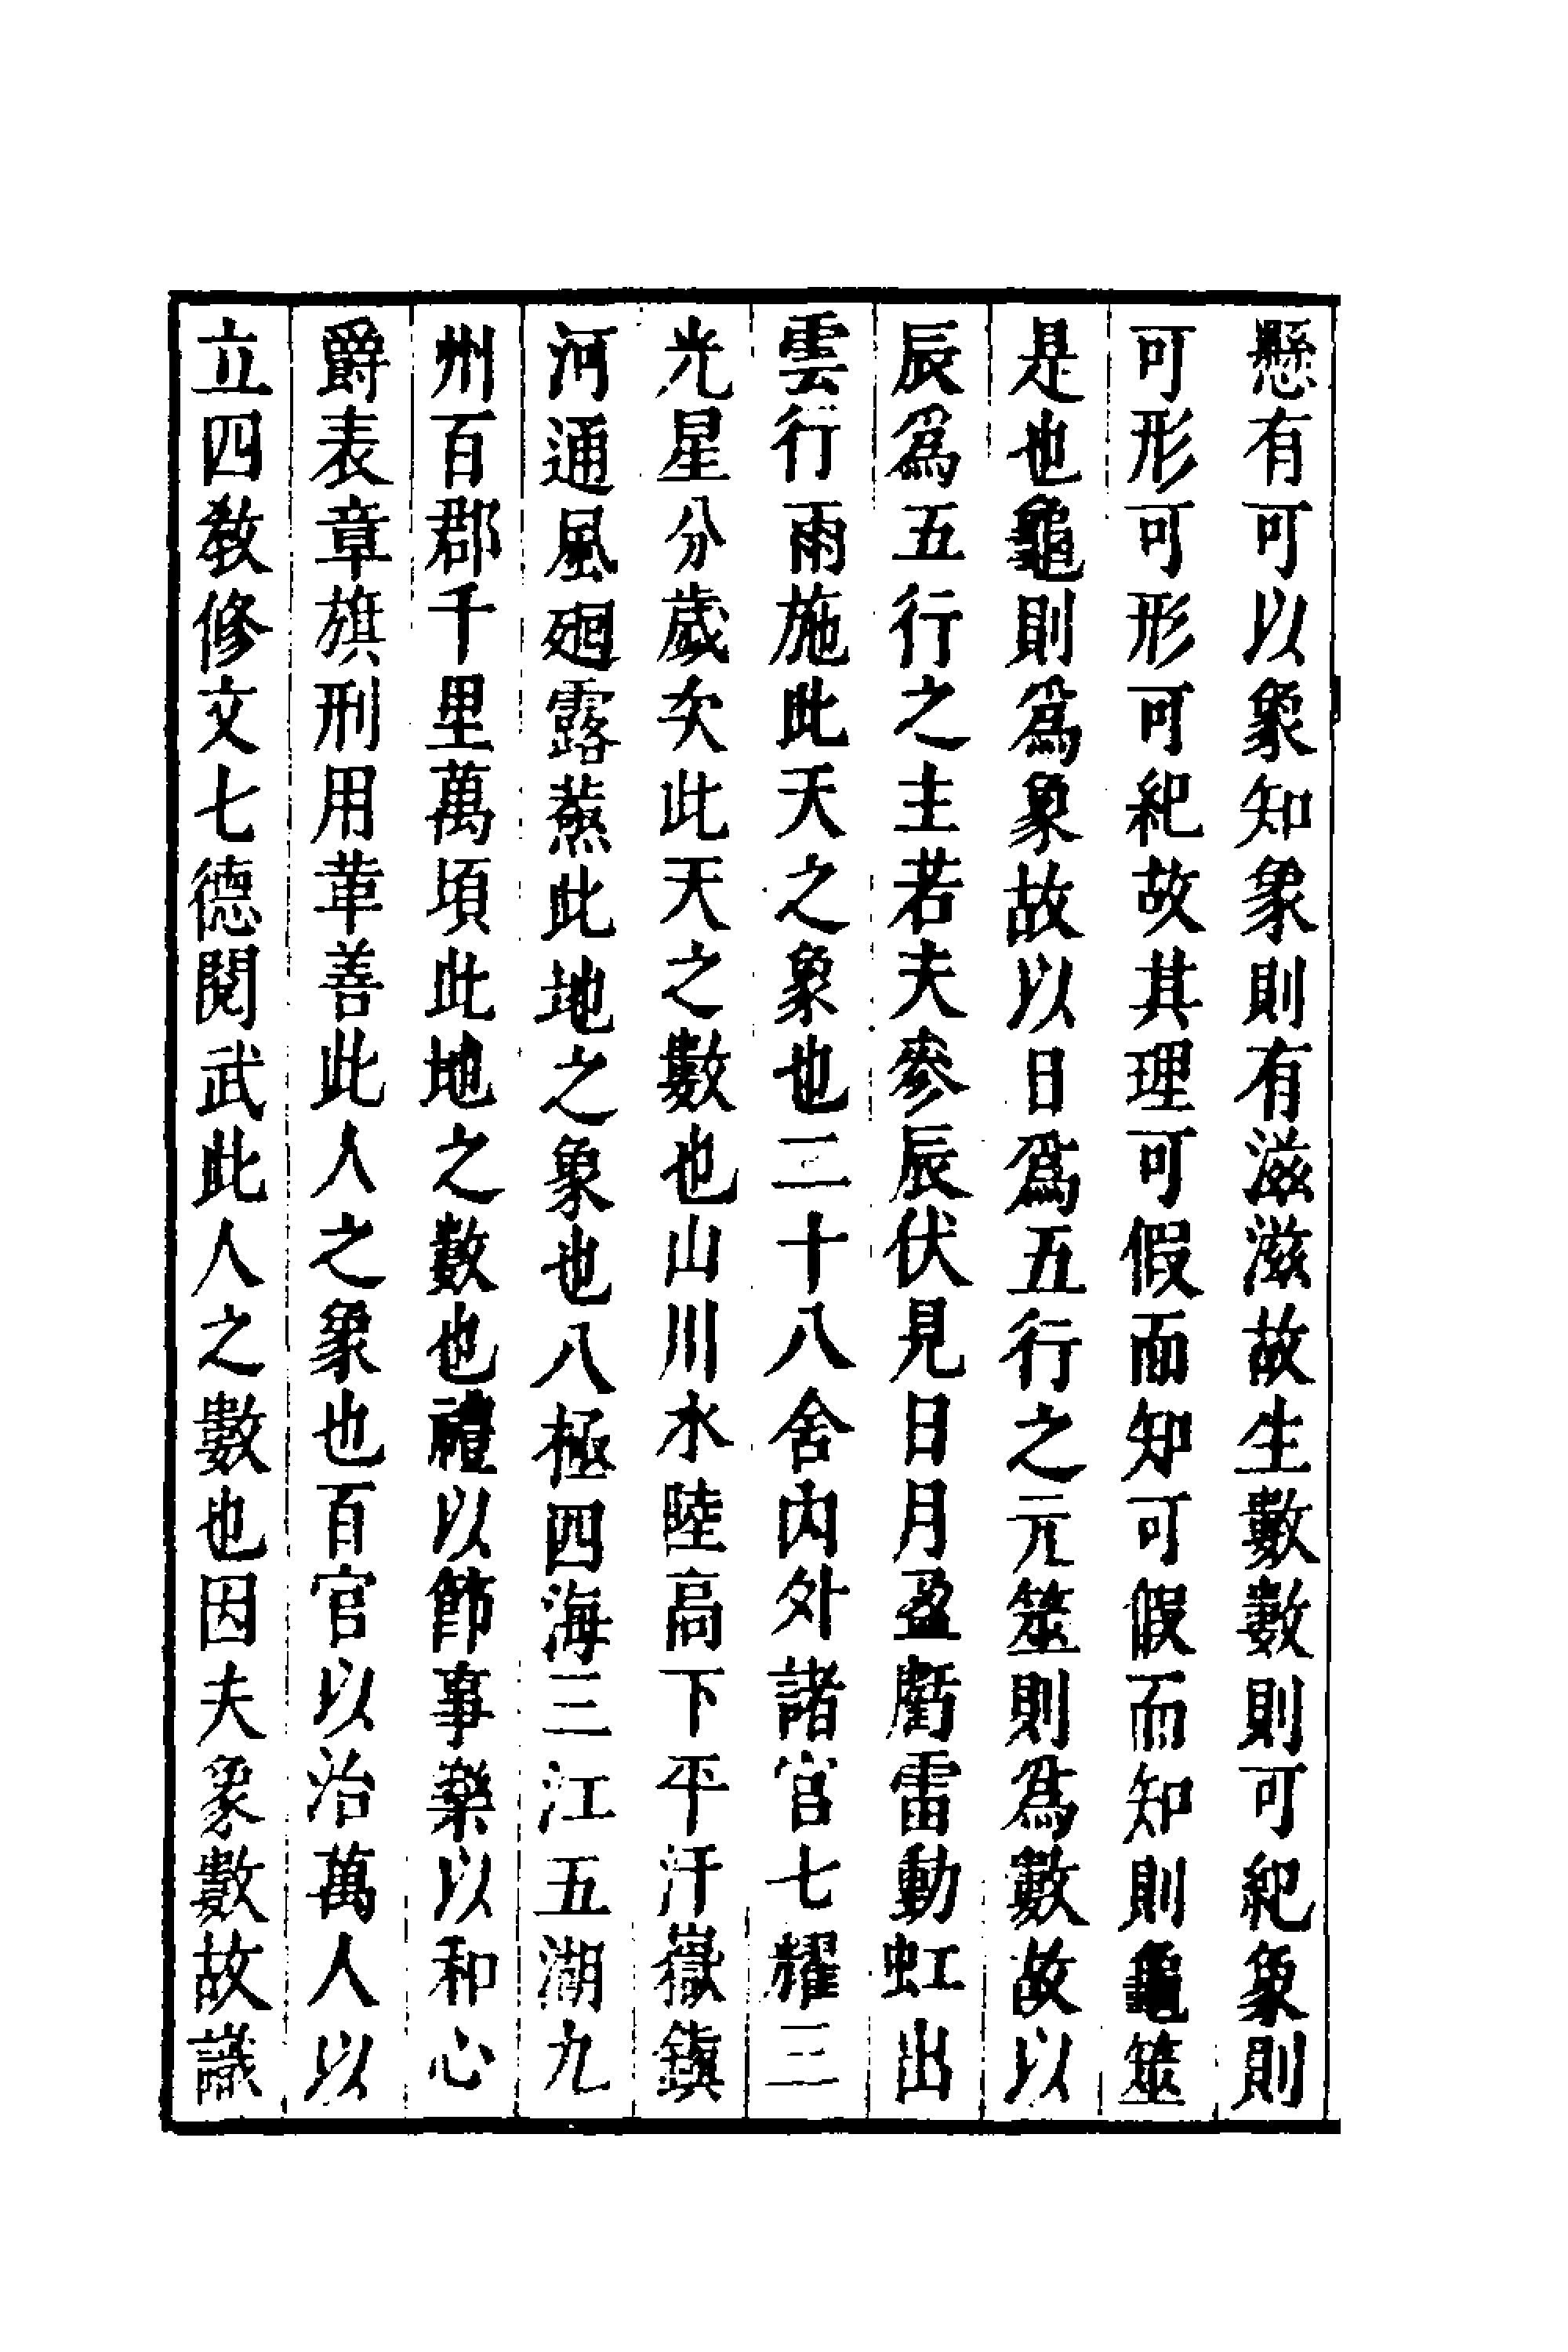 懸有可以象知象則有滋滋故生數數則可紀象則
可形可形可紀故其理可假而知可假而知則龜筮
是也龜則爲象故以日爲五行之元筮則爲數故以
辰爲五行之主若夫參辰伏見日月盈虧雷動虹出
雲行雨施此天之象也二十八舍內外諸官七耀三
光星分歲次此天之數也山川水陸高下平汙嶽鎮
河通風廻露蒸此地之象也八極四海三江五湖九
州百郡千里萬頃此地之數也禮以節事樂以和心
爵表章旗刑用革善此人之象也百官以治萬人以
立四教修文七德閱武此人之數也因夫象數故識